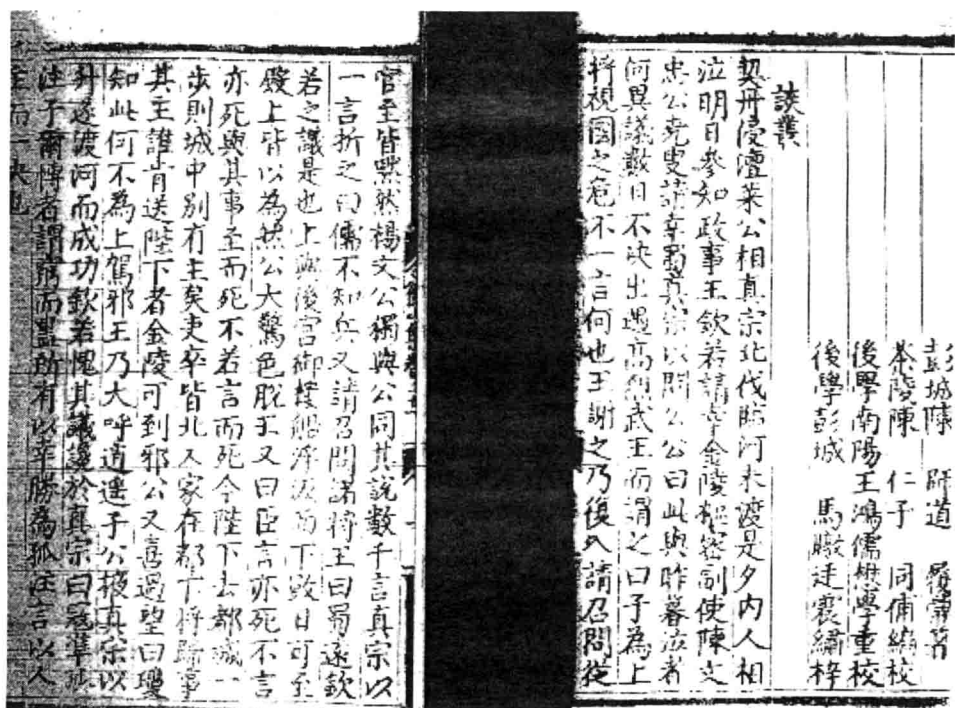 彭城陳　師道　履常著
茶陵陳　仁子　同俌編校
後學南陽王鴻儒懋學重校
後學彭城　馬暾廷震繡梓
談叢
契丹侵澶萊公相真宗北伐臨河未渡是夕内人相
泣明日參知政事王欽若請幸金陵樞密副使陳文
忠公堯叟請幸蜀真宗以問公公曰此與昨暮泣者
何異議數日不決出遇高烈武王而謂之曰子為上
將視國之危不一言何也王謝之乃復入請召問從
官至皆默然楊文公獨與公同其說數千言真宗以
一言折之曰儒不知兵又請召問諸將王曰蜀遠欽
若之議是也上與後宮御樓船浮汳而下數日可至
殿上皆以為然公大驚色脫王又曰臣言亦死不言
亦死與其事至而死不若言而死今陛下去都城一
步則城中別有主矣吏卒皆北人家在都下將歸事
其主誰肯送陛下者金陵可到邪公又喜過望曰瓊
知此何不為上駕邪王乃大呼逍遙子公掖真宗以
升遂渡河而成功欽若愧其議讒於真宗曰寇準孤
注子爾博者謂窮而盡所有以幸勝為孤注言以人
主而一決也